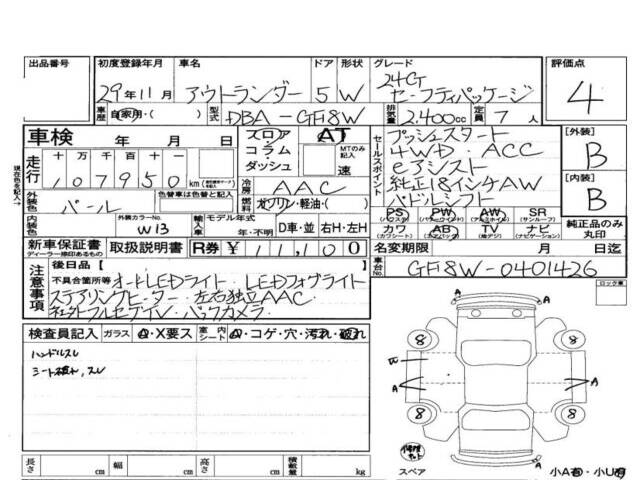 出品番号 初度登録年月 車名 ドア 形状 グレード 評価点
29年11月 アウトランダー 5 W 24GT セーフティパッケージ 4
車歴 自家用・( ) 型式 DBA-GF8W 排気量 2,400cc 定員 7人
車検 年 月 日 フロア コラム ダッシュ AT MTのみ記入 速
セールスポイント プッシュスタート
4WD・ACC
eアシスト
純正18インチAW
パドルシフト
【外装】 B
【内装】 B
走行 十万千百十一
107950 km
冷房 AAC
外装色 パール 色替車は色替と記入 燃料 ガソリン・軽油・( )
内装色 外装カラーNo. W13 輸入車 モデル年式 年・不明 D車・並 右H・左H
PS (パワステ) PW (パワーウインド) AW (アルミホイル) SR (サンルーフ)
カワ (カワシート) AB (エアバッグ) TV (地デジ) ナビ (ナビゲーション)
純正品のみ丸印
新車保証書 ディーラー捺印あるもの 取扱説明書 R券 ¥11,100 名変期限 月 日迄
注意事項 後日品( )
不具合箇所等 オートLEDライト LEDフォグライト
ステアリングヒーター 左右独立AAC
社外フルセグTV バックカメラ
車台No. GF8W-0401426
ロック車
検査員記入 ガラス A・X要ス 室内シート A・コゲ・穴・汚れ・破れ
ハンドルスレ
シート破れ、スレ
W A A A A
8 8 8 8
スペア
小A有・小U有
長さ cm 幅 cm 高さ cm 積載量 kg